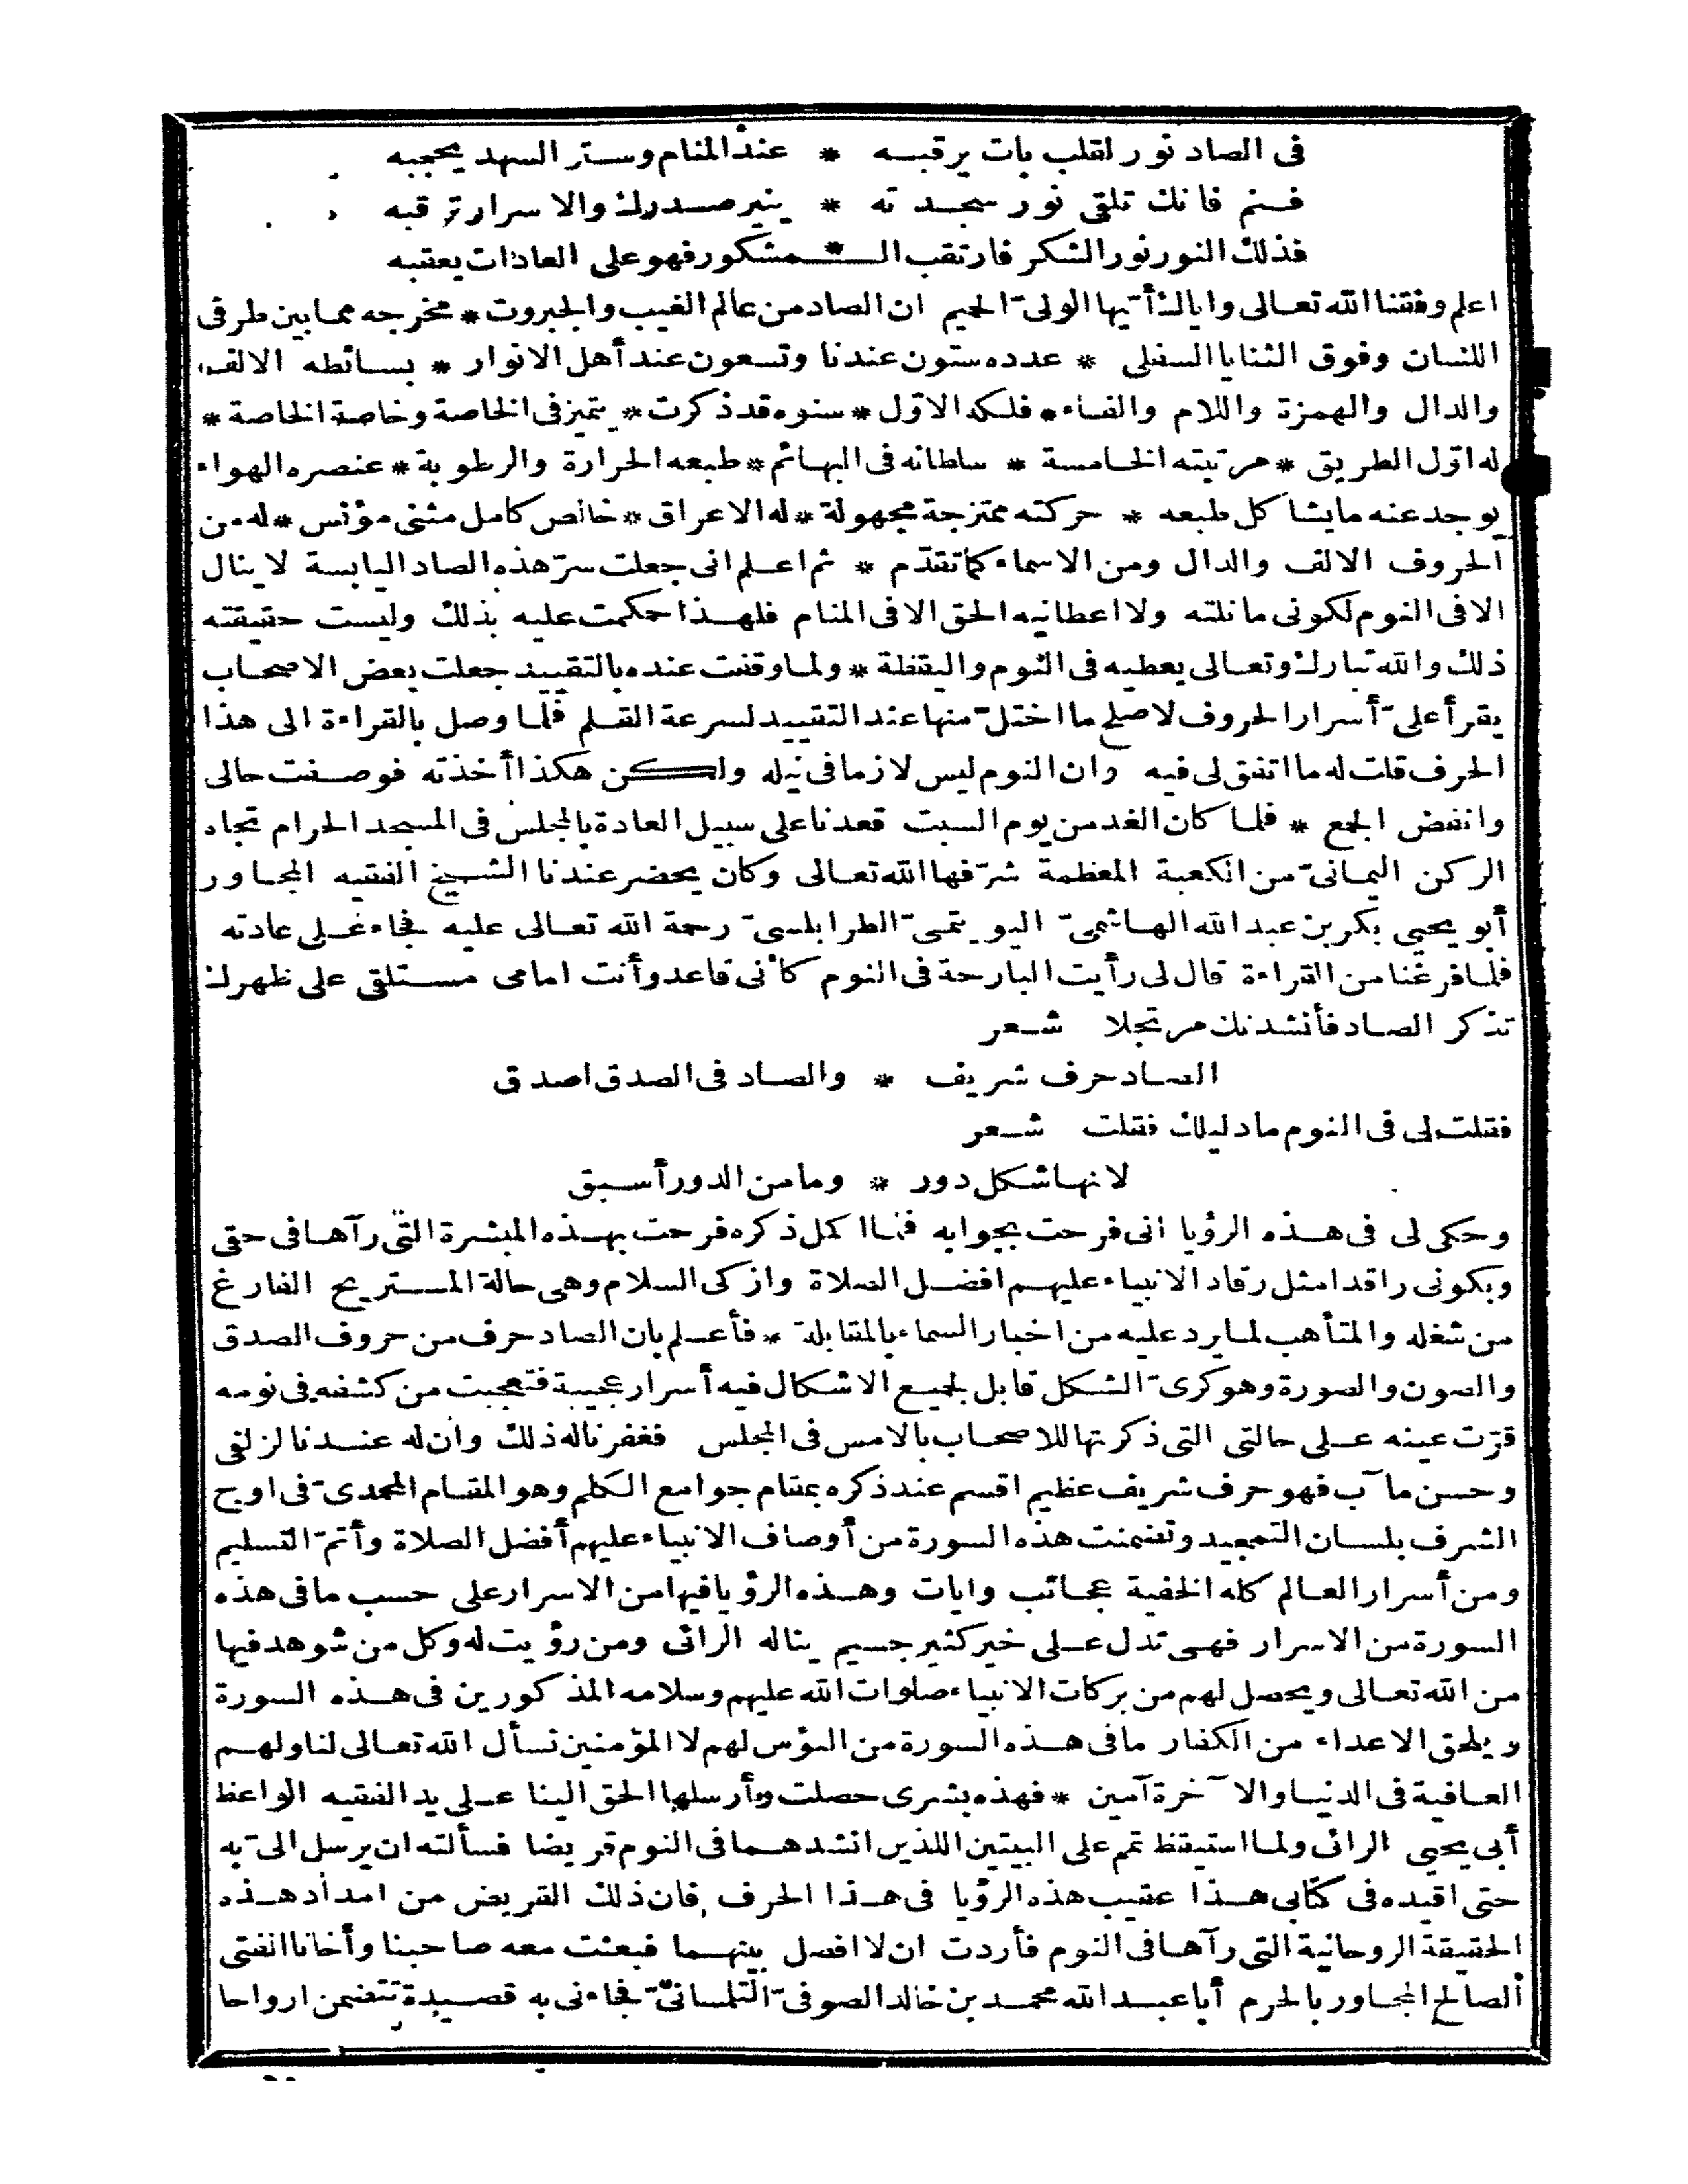 فى الصاد نور لقلب بات يرقبه * عند المنام وستر السهد يحجبه
فنم فانك تلقى نور سجدته * ينير صدرك والاسرار ترقبه
فذلك النور نور الشكر فارتقب ال * مشكور فهو على العادات يعقبه
اعلم وفقنا الله تعالى واياك أيها الولىّ الحميم ان الصاد من عالم الغيب والجبروت * مخرجه مما بين طرفى
اللسان وفوق الثنايا السفلى * عدده ستون عندنا وتسعون عند أهل الانوار * بسائطه الالف
والدال والهمزة واللام والفاء * فلكه الاوّل * سنوه قد ذكرت * يتميز فى الخاصة وخاصة الخاصة *
له اوّل الطريق * مرتبته الخامسة * سلطانه فى البهائم * طبعه الحرارة والرطوبة * عنصره الهواء
يوجد عنه مايشاكل طبعه * حركته ممتزجة مجهولة * له الاعراق * خالص كامل مثنى مؤنس * له من
الحروف الالف والدال ومن الاسماء كما تقدّم * ثم اعلم انى جعلت سرّ هذه الصاد اليابسة لا ينال
الا فى النوم لكونى ما نلته ولا اعطانيه الحق الا فى المنام فلهذا حكمت عليه بذلك وليست حقيقته
ذلك والله تبارك وتعالى يعطيه فى النوم واليقظة * ولما وقفت عنده بالتقييد جعلت بعض الاصحاب
يقرأ علىّ أسرار الحروف لاصلح ما اختلّ منها عند التقييد لسرعة القلم فلما وصل بالقراءة الى هذا
الحرف قلت له ما اتفق لى فيه وان النوم ليس لازما فى نيله ولكن هكذا أخذته فوصفت حالى
وانفض الجمع * فلما كان الغد من يوم السبت قعدنا على سبيل العادة بالمجلس فى المسجد الحرام تجاه
الركن اليمانىّ من الكعبة المعظمة شرّفها الله تعالى وكان يحضر عندنا الشيخ الفقيه المجاور
أبو يحيى بكر بن عبد الله الهاشمىّ التويتمىّ الطرابلسىّ رحمة الله تعالى عليه فجاء على عادته
فلما فرغنا من القراءة قال لى رأيت البارحة فى النوم كأنى قاعد وأنت امامى مستلقى على ظهرك
تذكر الصاد فأنشدتك مرتجلا شعر
الصاد حرف شريف * والصاد فى الصدق اصدق
فقلت لى فى النوم ما دليلك فقلت شعر
لانها شكل دور * وما من الدور أسبق
وحكى لى فى هذه الرؤيا انى فرحت بجوابه فلما اكمل ذكره فرحت بهذه المبشرة التى رآها فى حقى
وبكونى راقدا مثل رقاد الانبياء عليهم افضل الصلاة وازكى السلام وهى حالة المستريح الفارغ
من شغله والمتأهب لما يرد عليه من اخبار السماء بالمقابلة * فأعلم بان الصاد حرف من حروف الصدق
والصون والصورة وهو كرىّ الشكل قابل لجميع الاشكال فيه أسرار عجيبة فتعجبت من كشفه فى نومه
قرّت عينه على حالتى التى ذكرتها للاصحاب بالامس فى المجلس فغفرنا له ذلك وان له عندنا لزلفى
وحسن مآب فهو حرف شريف عظيم اقسم عند ذكره بمقام جوامع الكلم وهو المقام المحمدىّ فى اوج
الشرف بلسان التمجيد وتضمنت هذه السورة من أوصاف الانبياء عليهم أفضل الصلاة وأتمّ التسليم
ومن أسرار العالم كله الخفية عجائب وايات وهذه الرؤيا فيها من الاسرار على حسب ما فى هذه
السورة من الاسرار فهى تدل على خير كثير جسيم يناله الرائى ومن رؤيت له وكل من شوهد فيها
من الله تعالى ويحصل لهم من بركات الانبياء صلوات الله عليهم وسلامه المذكورين فى هذه السورة
ويلحق الاعداء من الكفار ما فى هذه السورة من البؤس لهم لا المؤمنين نسأل الله تعالى لنا ولهم
العافية فى الدنيا والآخرة آمين * فهذه بشرى حصلت وأرسلها الحق الينا على يد الفقيه الواعظ
أبى يحيى الرائى ولما استيقظ تمم على البيتين اللذين انشدهما فى النوم قريضا فسألته ان يرسل الىّ به
حتى اقيده فى كتابى هذا عقيب هذه الرؤيا فى هذا الحرف فان ذلك القريض من امداد هذه
الحقيقة الروحانية التى رآها فى النوم فأردت ان لا افصل بينهما فبعثت معه صاحبنا وأخانا الفتى
الصالح المجاور بالحرم أبا عبد الله محمد بن خالد الصوفىّ التلمسانىّ فجاءنى به قصيدة تتضمن ارواحا